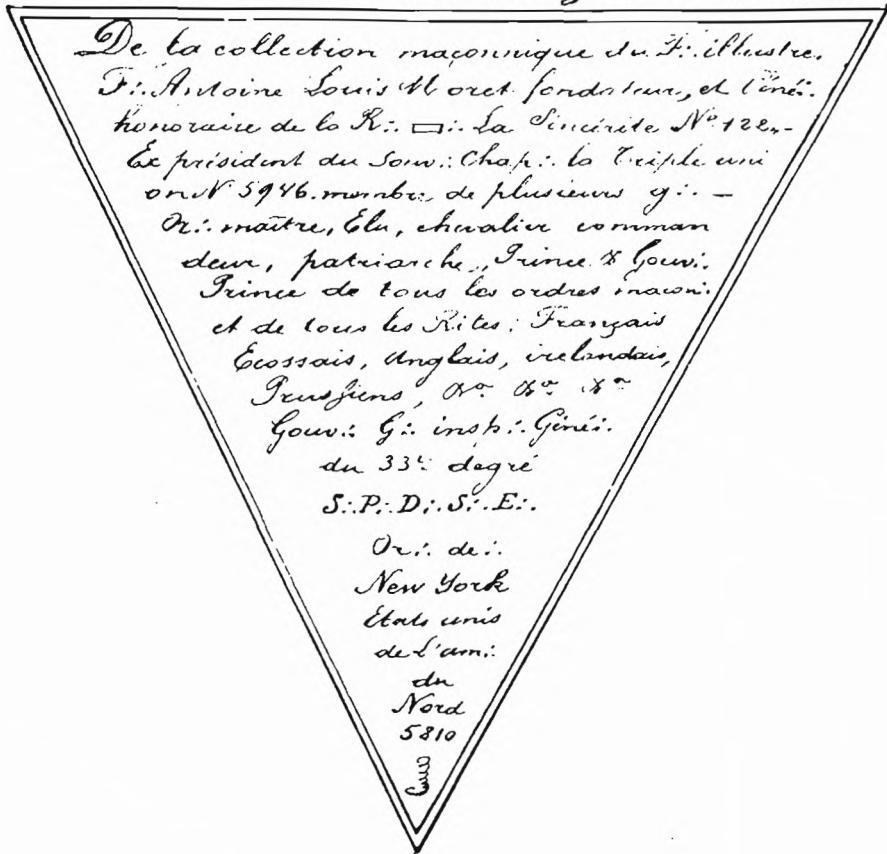 De la collection maçonnique du F∴ illustre.
F∴ Antoine Louis Moret fondateur, et Véné∴
honoraire de la R∴ ▭∴ La Sincérite Nº 122,-
Ex président du Souv∴ Chap∴ la Triple uni
on Nº 5946. membre de plusieurs g∴ —
Or∴ maître, Elu, chevalier comman
deur, patriarche, Prince & Gouv∴
Prince de tous les ordres maçon∴
et de tous les Rites; Français
Ecossais, Anglais, irelandais,
Prussiens, &ª &ª &ª
Gouv∴ G∴ insp∴ Géné∴
du 33∴ degré
S∴P∴D∴S∴E∴
Or∴ de∴
New York
Etats unis
de L'am∴
du
Nord
5810